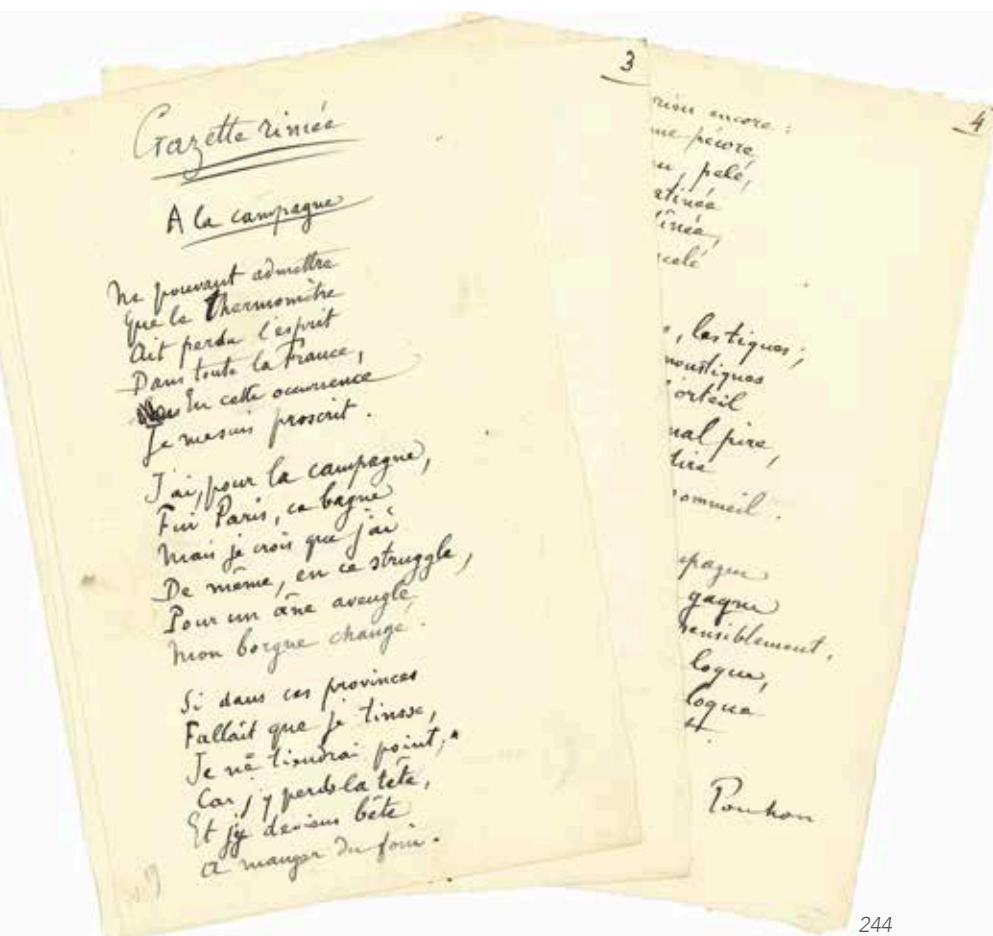 3
Gazette rimée
A la campagne
Ne pouvant admettre
Que le Thermomètre
Ait perdu l'esprit
Dans toute la France,
En cette occurrence
Je me suis proscrit.
J'ai, pour la campagne,
Fui Paris, ce bagne
Mais je crois que j'ai
De même, en ce struggle,
Pour un âne aveugle
Mon borgne changé.
Si dans ces provinces
Fallait que je tinsse,
Je ne tiendrai point,
Car j'y perds la tête,
Et j'y deviens bête
A manger du foin.
4
encore :
pécore,
pelé,
celé
, les tiques ;
moustiques
orteil
mal pire,
tire
sommeil.
mpagne
gagne
sensiblement,
logue,
loque
t.
Ponchon
244